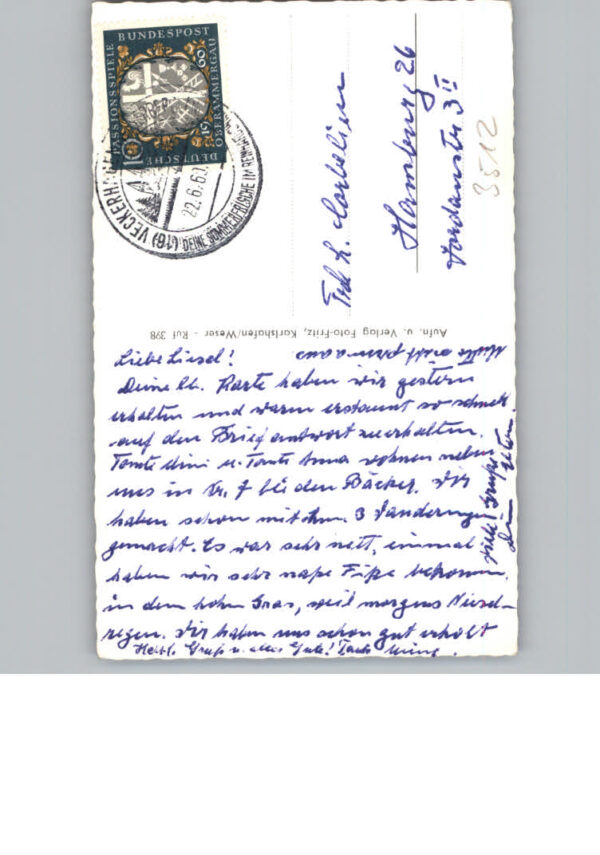 DEUTSCHE BUNDESPOST
PASSIONSSPIELE
OBERAMMERGAU
1960
10
(16) VECKERHAGEN
22.6.60
DEINE SOMMERFRISCHE IM REINHARDSWALD
Frl. L. Corbelin
Hamburg 26
Jordanstr. 3 II
3512
Aufn. u. Verlag Foto-Fritz, Karlshafen/Weser - Ruf 398
Liebe Liesel!
Deine lb. Karte haben wir gestern
erhalten und waren erstaunt so schnell
auf den Brief antwort zu erhalten.
Tante Mini u. Tante Anna wohnen neben
uns in Nr. 7 bei den Bäcker. Wir
haben schon mit ihn. 3 Wanderungen
gemacht. Es war sehr nett, einmal
haben wir sehr naße Füße bekomm.
in dem hohen Gras, weil morgens Niesel-
regen. Wir haben uns schon gut erholt
Herzl. Gruß u. alles Gute! Tante Mime.
Viele Grüße